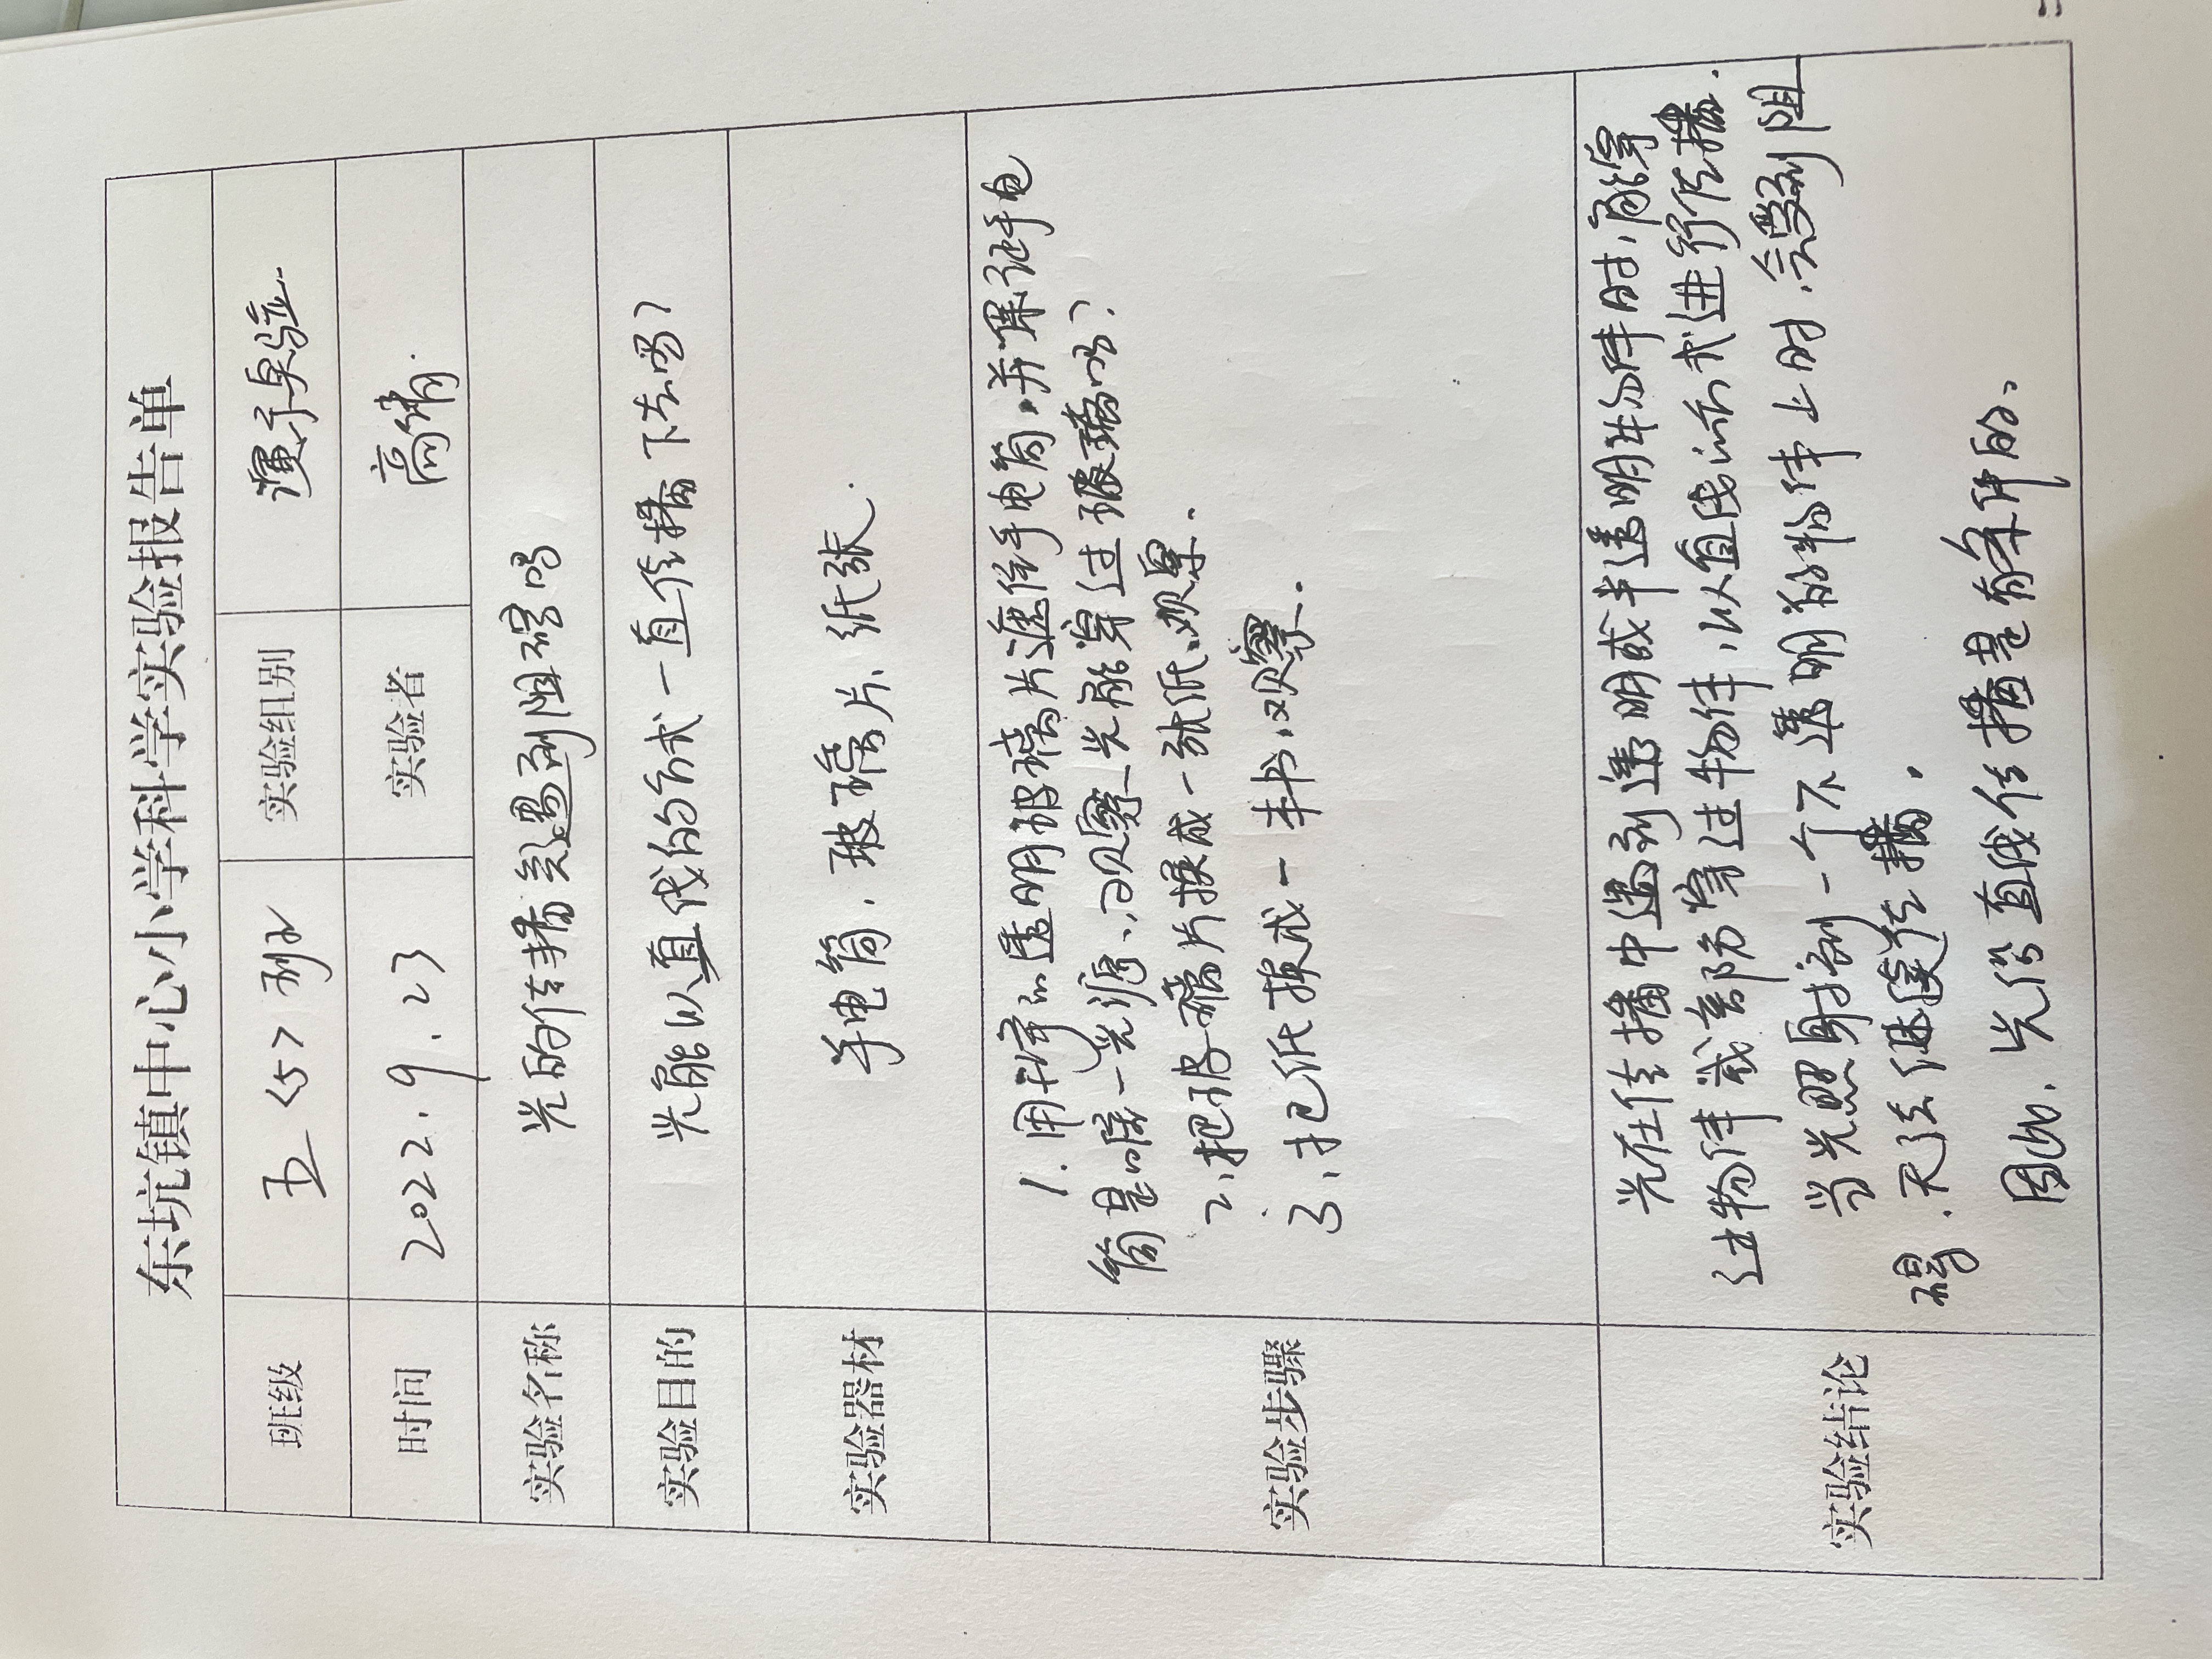 东坑镇中心小学科学实验报告单
班级 五<5>班 实验组别 演示实验
时间 2022.9.23 实验者 高倩
实验名称 光的传播会遇到阻碍吗
实验目的 光能以直线的方式一直传播下去吗?
实验器材 手电筒、玻璃片、纸张.
实验步骤
1.用 透明玻璃片遮住手电筒,并保证手电
筒是唯一光源、观察光能穿过玻璃吗?
2、把玻璃片换成一张纸、观察.
3、把纸换成一本书、观察.
实验结论
光在传播中遇到透明或半透明物体时,能穿
过物体或部分穿过物体,以直线的方式进行传播.
当光照射到一个不透明的物体上时,会受到阻
碍,无法继续传播.
因此,光沿直线传播是有条件的、